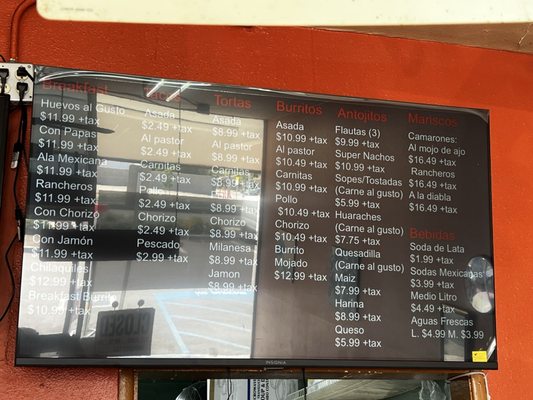 Breakfast
Huevos al Gusto
$11.99 +tax
Con Papas
$11.99 +tax
Ala Mexicana
$11.99 +tax
Rancheros
$11.99 +tax
Con Chorizo
$11.99 +tax
Con Jamón
$11.99 +tax
Chilaquiles
$12.99 +tax
Breakfast Burrito
$10.99 +tax
Tacos
Asada
$2.49 +tax
Al pastor
$2.49 +tax
Carnitas
$2.49 +tax
Pollo
$2.49 +tax
Chorizo
$2.49 +tax
Pescado
$2.99 +tax
Tortas
Asada
$8.99 +tax
Al pastor
$8.99 +tax
Carnitas
$8.99 +tax
$8.99 +tax
Chorizo
$8.99 +tax
Milanesa
$8.99 +tax
Jamon
$8.99 +tax
Burritos
Asada
$10.99 +tax
Al pastor
$10.49 +tax
Carnitas
$10.99 +tax
Pollo
$10.49 +tax
Chorizo
$10.49 +tax
Burrito
Mojado
$12.99 +tax
Antojitos
Flautas (3)
$9.99 +tax
Super Nachos
$10.99 +tax
Sopes/Tostadas
(Carne al gusto)
$5.99 +tax
Huaraches
(Carne al gusto)
$7.75 +tax
Quesadilla
(Carne al gusto)
Maiz
$7.99 +tax
Harina
$8.99 +tax
Queso
$5.99 +tax
Mariscos
Camarones:
Al mojo de ajo
$16.49 +tax
Rancheros
$16.49 +tax
A la diabla
$16.49 +tax
Bebidas
Soda de Lata
$1.99 +tax
Sodas Mexicanas
$3.99 +tax
Medio Litro
$4.49 +tax
Aguas Frescas
L. $4.99 M. $3.99
INSIGNIA